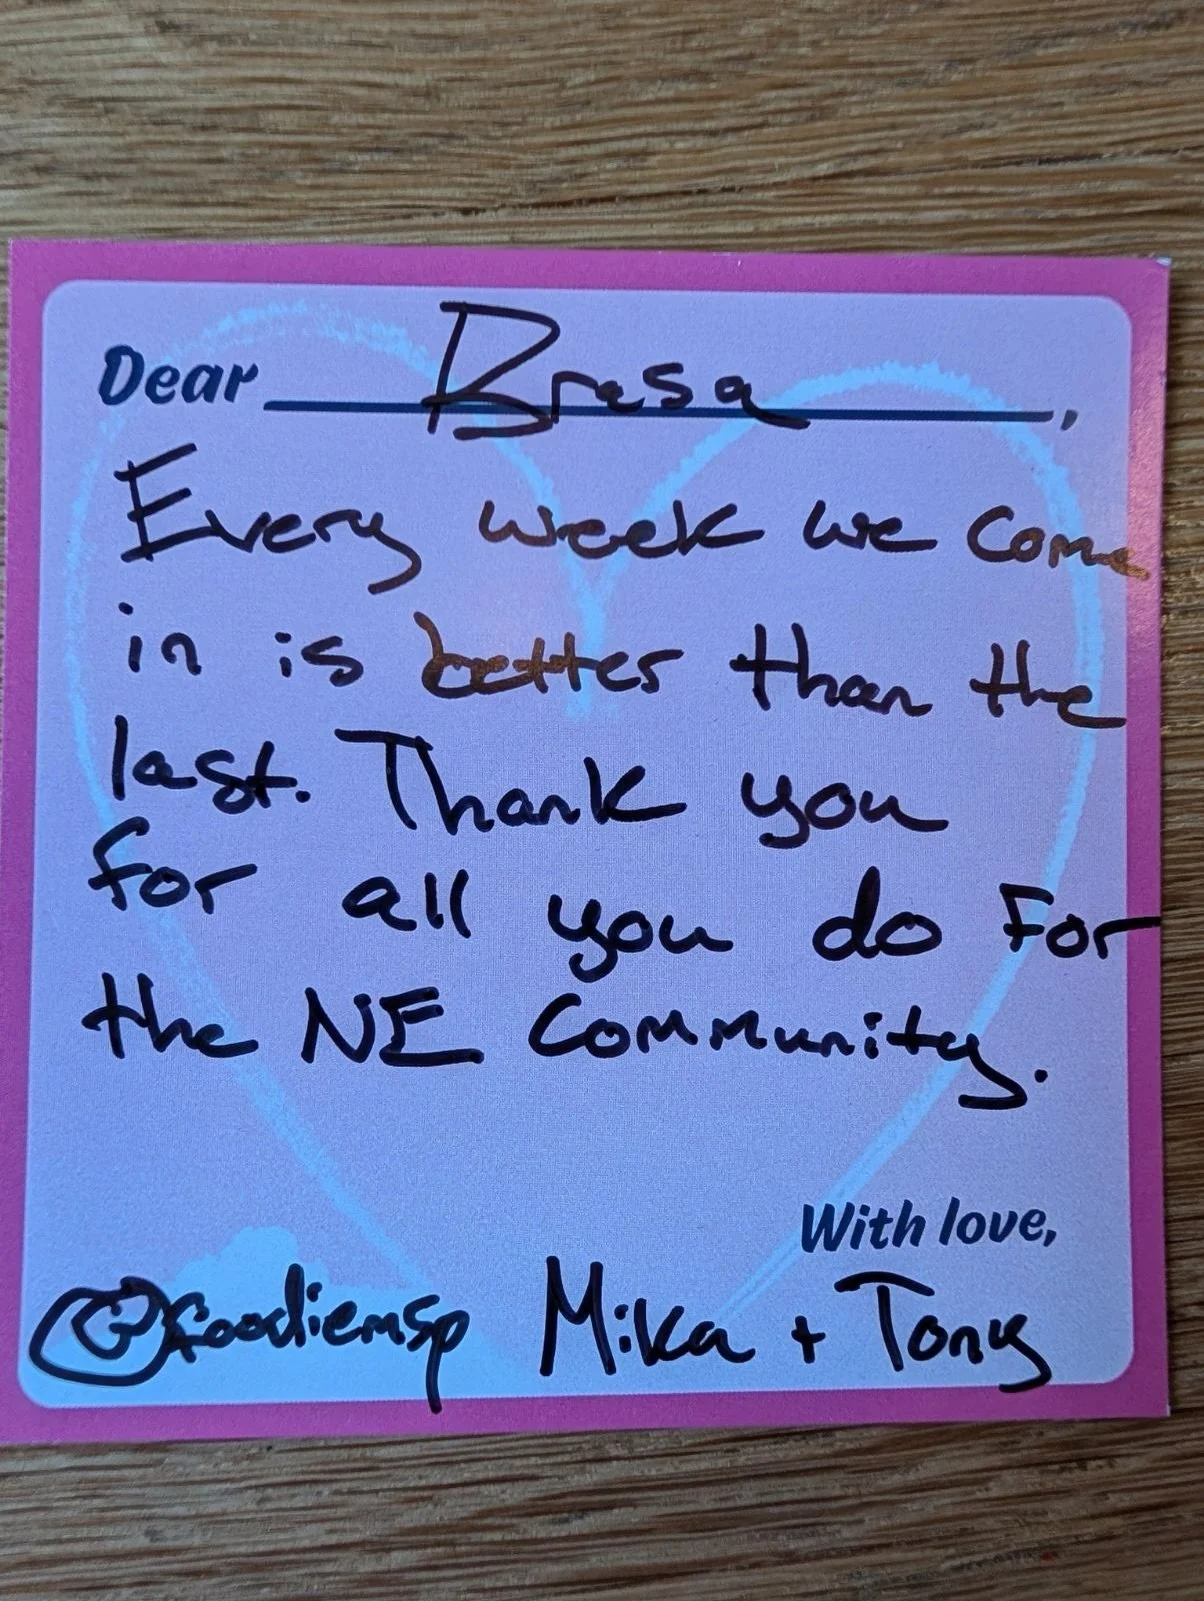 Dear Brasa,
Every week we come
in is better than the
last. Thank you
for all you do For
the NE Community.
With love,
@foodiemsp Mika + Tony